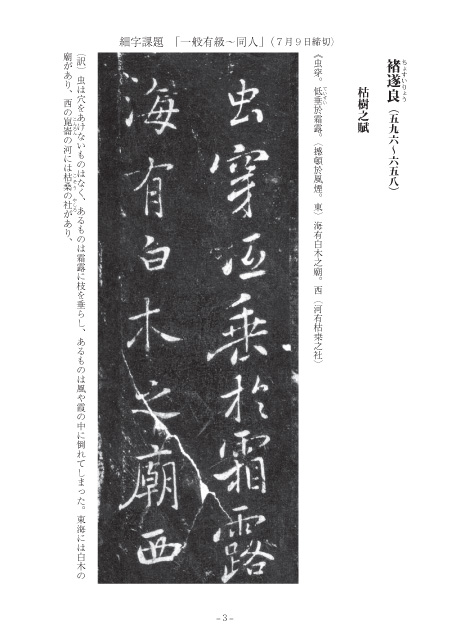 細字課題 「一般有級～同人」(７月９日締切)
褚遂良（五九六～六五八）
ちょすいりょう
枯樹之賦
《虫穿。低垂於霜露。（撼頓於風煙。東）海有白木之廟。西（河有枯桑之社）
ていすい
虫穿低垂於霜露
海有白木之廟西
（訳）虫は穴をあけないものはなく、あるものは霜露に枝を垂らし、あるものは風や霞の中に倒れてしまった。東海には白木の
廟があり、西の崑崙の河には枯桑の社があり、
こんろん
こそう
やしろ
－3－